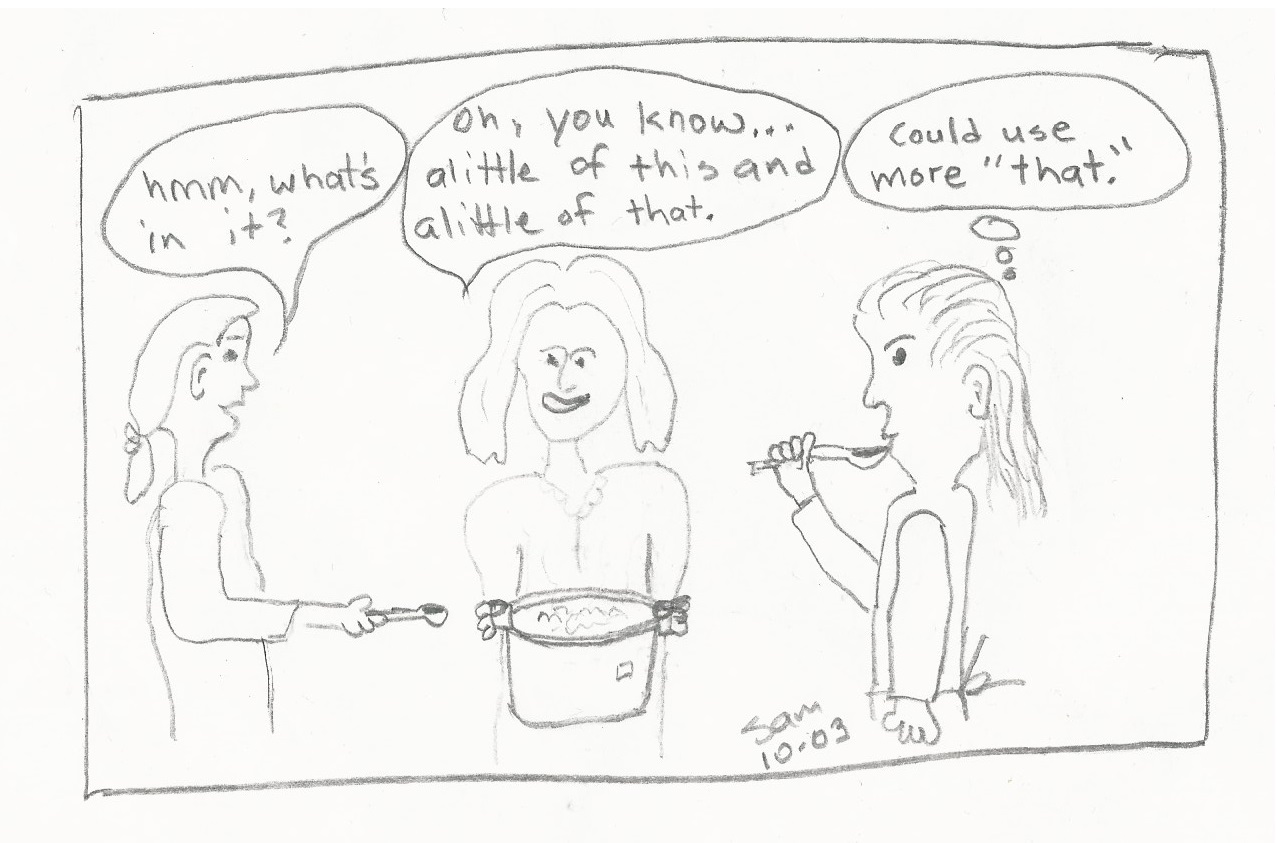 hmm, what's
in it?
oh, you know...
alittle of this and
alittle of that.
Could use
more "that."
Sam
10.03